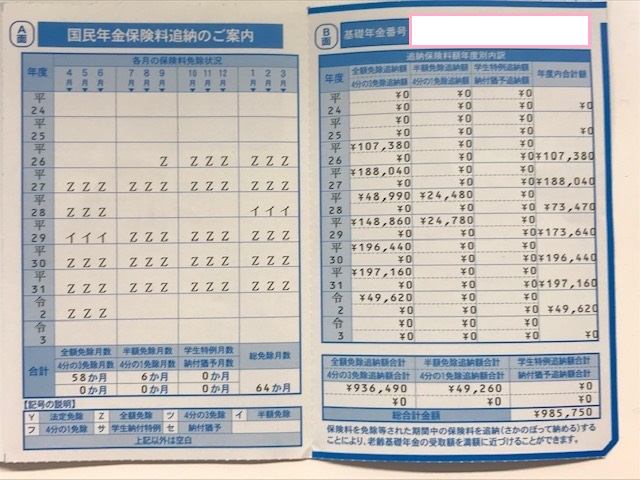 A面
国民年金保険料追納のご案内
各月の保険料免除状況
年度 4月 5月 6月 7月 8月 9月 10月 11月 12月 1月 2月 3月
平24
平25
平26 Z Z Z Z Z Z Z
平27 Z Z Z Z Z Z Z Z Z Z Z Z
平28 Z Z Z イ イ イ
平29 イ イ イ Z Z Z Z Z Z Z Z Z
平30 Z Z Z Z Z Z Z Z Z Z Z Z
平31 Z Z Z Z Z Z Z Z Z Z Z Z
令2 Z Z Z
令3
合計
全額免除月数 半額免除月数 学生特例月数 総免除月数
4分の3免除月数 4分の1免除月数 納付猶予月数
58か月 6か月 0か月
0か月 0か月 0か月 64か月
【記号の説明】
Y 法定免除 Z 全額免除 ツ 4分の3免除 イ 半額免除
フ 4分の1免除 サ 学生納付特例 セ 納付猶予
上記以外は空白
B面
基礎年金番号
追納保険料額年度別内訳
年度 全額免除追納額 半額免除追納額 学生特例追納額 年度内合計額
4分の3免除追納額 4分の1免除追納額 納付猶予追納額
平24 ¥0 ¥0 ¥0
¥0 ¥0 ¥0 ¥0
平25 ¥0 ¥0 ¥0
¥0 ¥0 ¥0 ¥0
平26 ¥107,380 ¥0 ¥0
¥0 ¥0 ¥0 ¥107,380
平27 ¥188,040 ¥0 ¥0
¥0 ¥0 ¥0 ¥188,040
平28 ¥48,990 ¥24,480 ¥0
¥0 ¥0 ¥0 ¥73,470
平29 ¥148,860 ¥24,780 ¥0
¥0 ¥0 ¥0 ¥173,640
平30 ¥196,440 ¥0 ¥0
¥0 ¥0 ¥0 ¥196,440
平31 ¥197,160 ¥0 ¥0
¥0 ¥0 ¥0 ¥197,160
令2 ¥49,620 ¥0 ¥0
¥0 ¥0 ¥0 ¥49,620
令3 ¥0 ¥0 ¥0
¥0 ¥0 ¥0 ¥0
全額免除追納額合計 半額免除追納額合計 学生特例追納額合計
4分の3免除追納額合計 4分の1免除追納額合計 納付猶予追納額合計
¥936,490 ¥49,260 ¥0
¥0 ¥0 ¥0
総合計金額 ¥985,750
保険料を免除等された期間中の保険料を追納(さかのぼって納める)する
ことにより、老齢基礎年金の受取額を満額に近づけることができます。